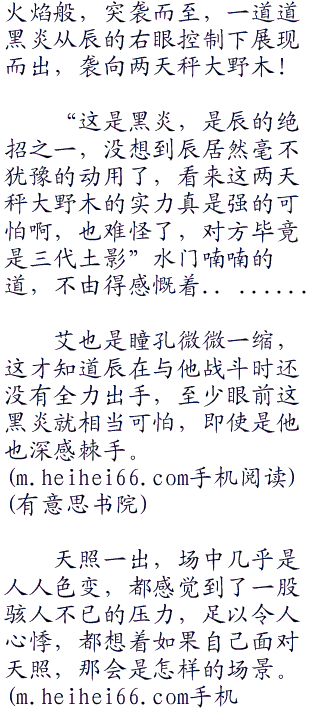 火焰般，突袭而至，一道道
黑炎从辰的右眼控制下展现
而出，袭向两天秤大野木！
“这是黑炎，是辰的绝
招之一，没想到辰居然毫不
犹豫的动用了，看来这两天
秤大野木的实力真是强的可
怕啊，也难怪了，对方毕竟
是三代土影”水门喃喃的
道，不由得感慨着.. ......
艾也是瞳孔微微一缩，
这才知道辰在与他战斗时还
没有全力出手，至少眼前这
黑炎就相当可怕，即使是他
也深感棘手。
(m.heihei66.com手机阅读)
(有意思书院)
天照一出，场中几乎是
人人色变，都感觉到了一股
骇人不已的压力，足以令人
心悸，都想着如果自己面对
天照，那会是怎样的场景。
(m.heihei66.com手机